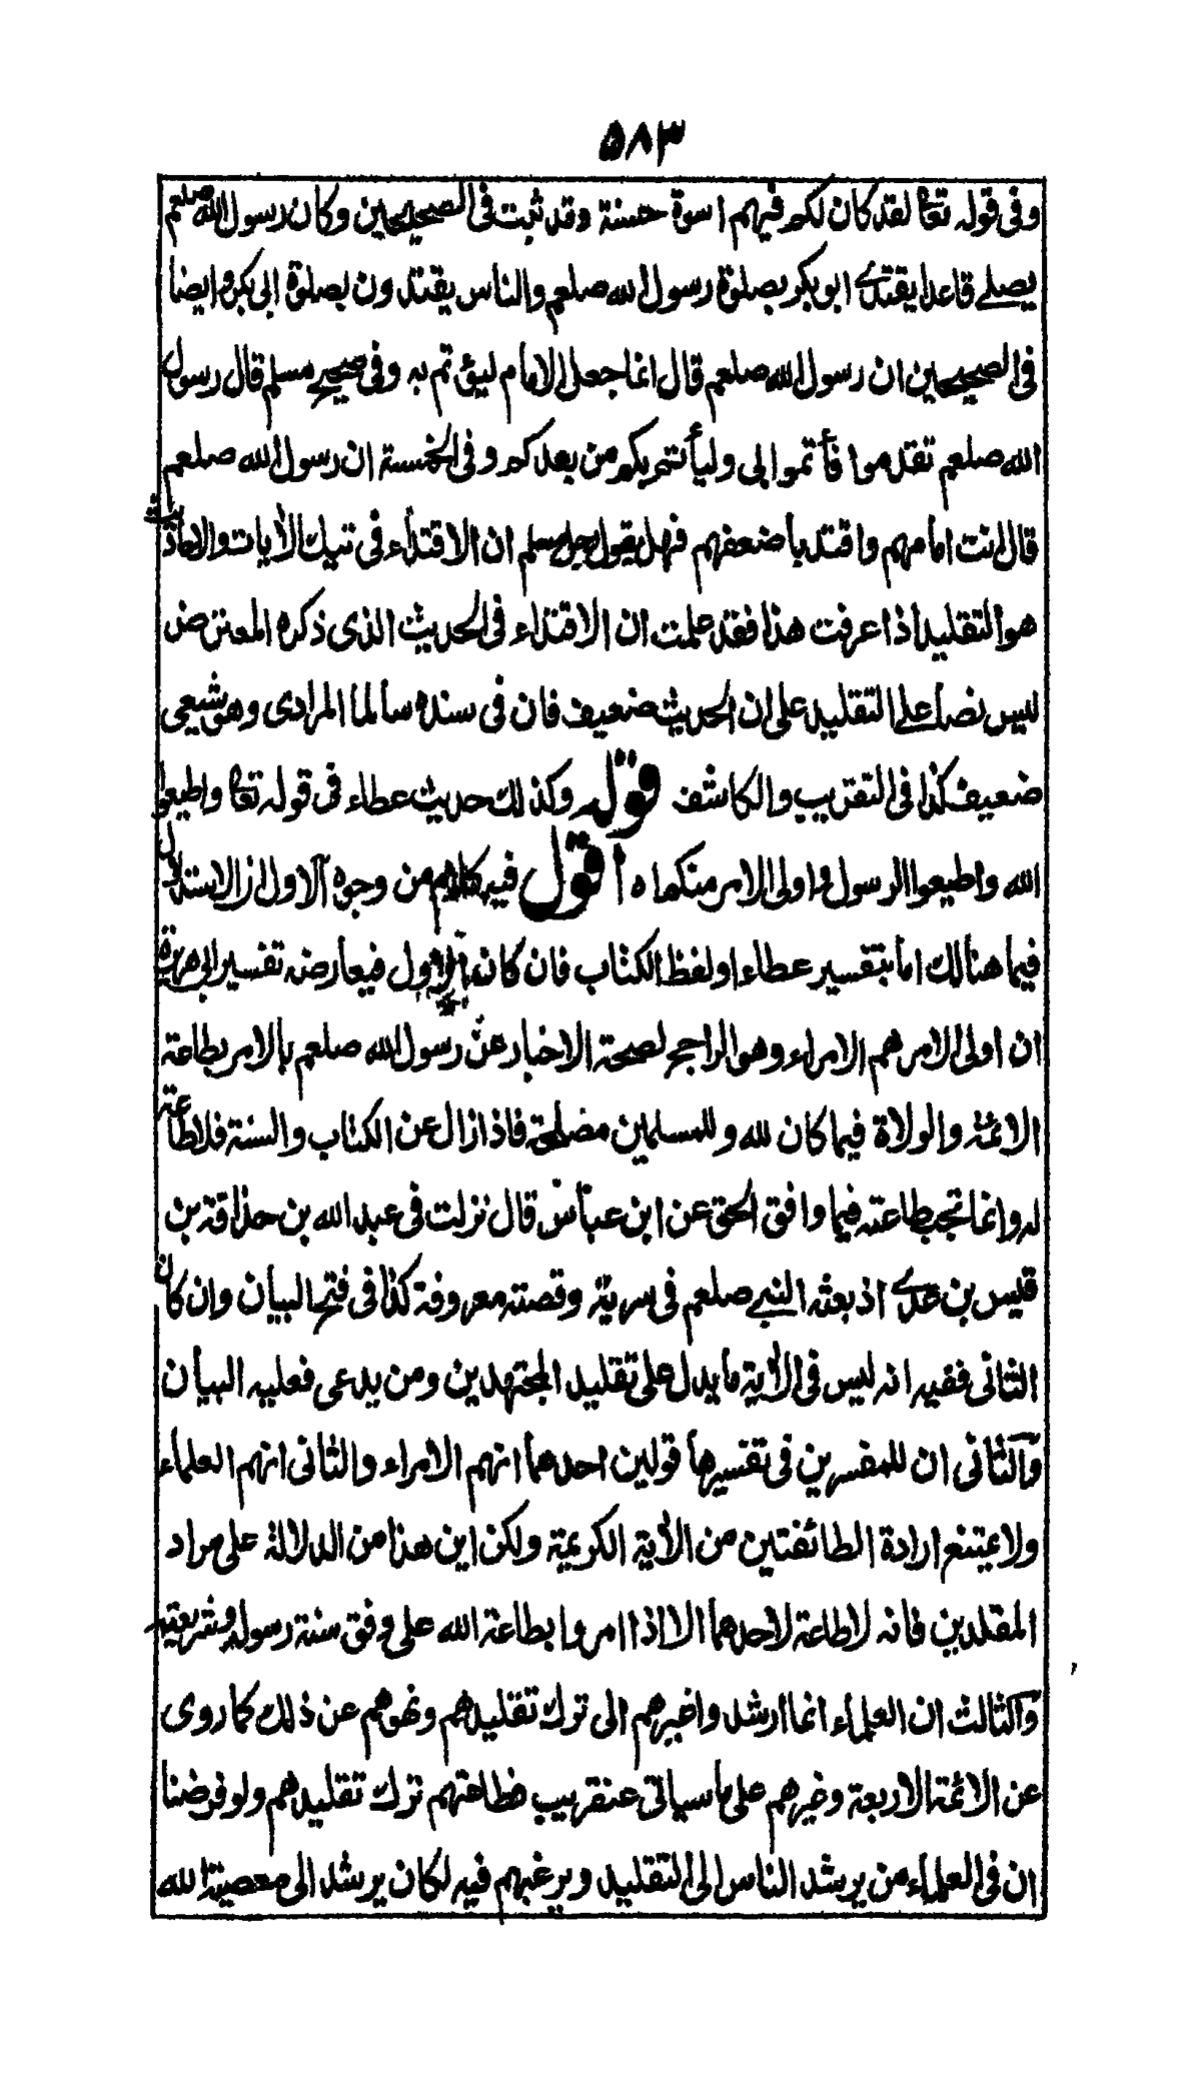 ٥٨٣
وفى قوله تعالى لقد كان لكم فيهم اسوة حسنة وقد ثبت فى الصحيحين وكان رسول الله صلعم
يصلے قاعدا يقتدے ابو بكر بصلوة رسول الله صلعم والناس يقتدون بصلوة ابى بكر وايضا
فى الصحيحين ان رسول الله صلعم قال انما جعل الامام ليؤتم به وفى صحيح مسلم قال رسول
الله صلعم تقدموا فأتموا بى وليأتم بكم من بعدكم وفى الخمسة ان رسول الله صلعم
قال انت امامهم واقتد بأضعفهم فهل يقول رجل مسلم ان الاقتداء فى تيك الأيات والاحاديث
هو التقليد اذا عرفت هذا فقد علمت ان الاقتداء فى الحديث الذى ذكره المعترض
ليس نصا على التقليد على ان الحديث ضعيف فان فى سنده سالما المرادى وهو شيعى
ضعيف كذا فى التقريب والكاشف قوله وكذلك حديث عطاء فى قوله تعالى واطيعوا
الله واطيعوا الرسول واولى الامر منكم اه أقول فيه كلام من وجوه الاول ان الاستدلال
فيما هنالك اما بتفسير عطاء او لفظ الكتاب فان كان الاول فيعارضه تفسير ابى هريرة
ان اولى الامر هم الامراء وهو الراجح لصحة الاخبار عن رسول الله صلعم بالامر بطاعة
الائمة والولاة فيما كان لله وللمسلمين مصلحة فاذا زال عن الكتاب والسنة فلا طاعة
له وانما تجب طاعته فيما وافق الحق عن ابن عباس قال نزلت فى عبد الله بن حذافة بن
قيس بن عدے اذ بعثه النبى صلعم فى سرية وقصته معروفة كذا فى فتح البيان وان كان
الثانى ففيه انه ليس فى الأية ما يدل على تقليد المجتهدين ومن يدعى فعليه البيان
والثانى ان للمفسرين فى تفسيرها قولين احدهما انهم الامراء والثانى انهم العلماء
ولا يمتنع ارادة الطائفتين من الأية الكريمة ولكن اين هذا من الدلالة على مراد
المقلدين فانه لا طاعة لاحدهما الا اذا امروا بطاعة الله على وفق سنة رسوله وشريعته
والثالث ان العلماء انما ارشدوا غيرهم الى ترك تقليدهم ونهوهم عن ذلك كما روى
عن الائمة الاربعة وغيرهم على ما سياتى عنقريب فطاعتهم ترك تقليدهم ولو فرضنا
ان فى العلماء من يرشد الناس الى التقليد ويرغبهم فيه لكان يرشد الى معصية الله